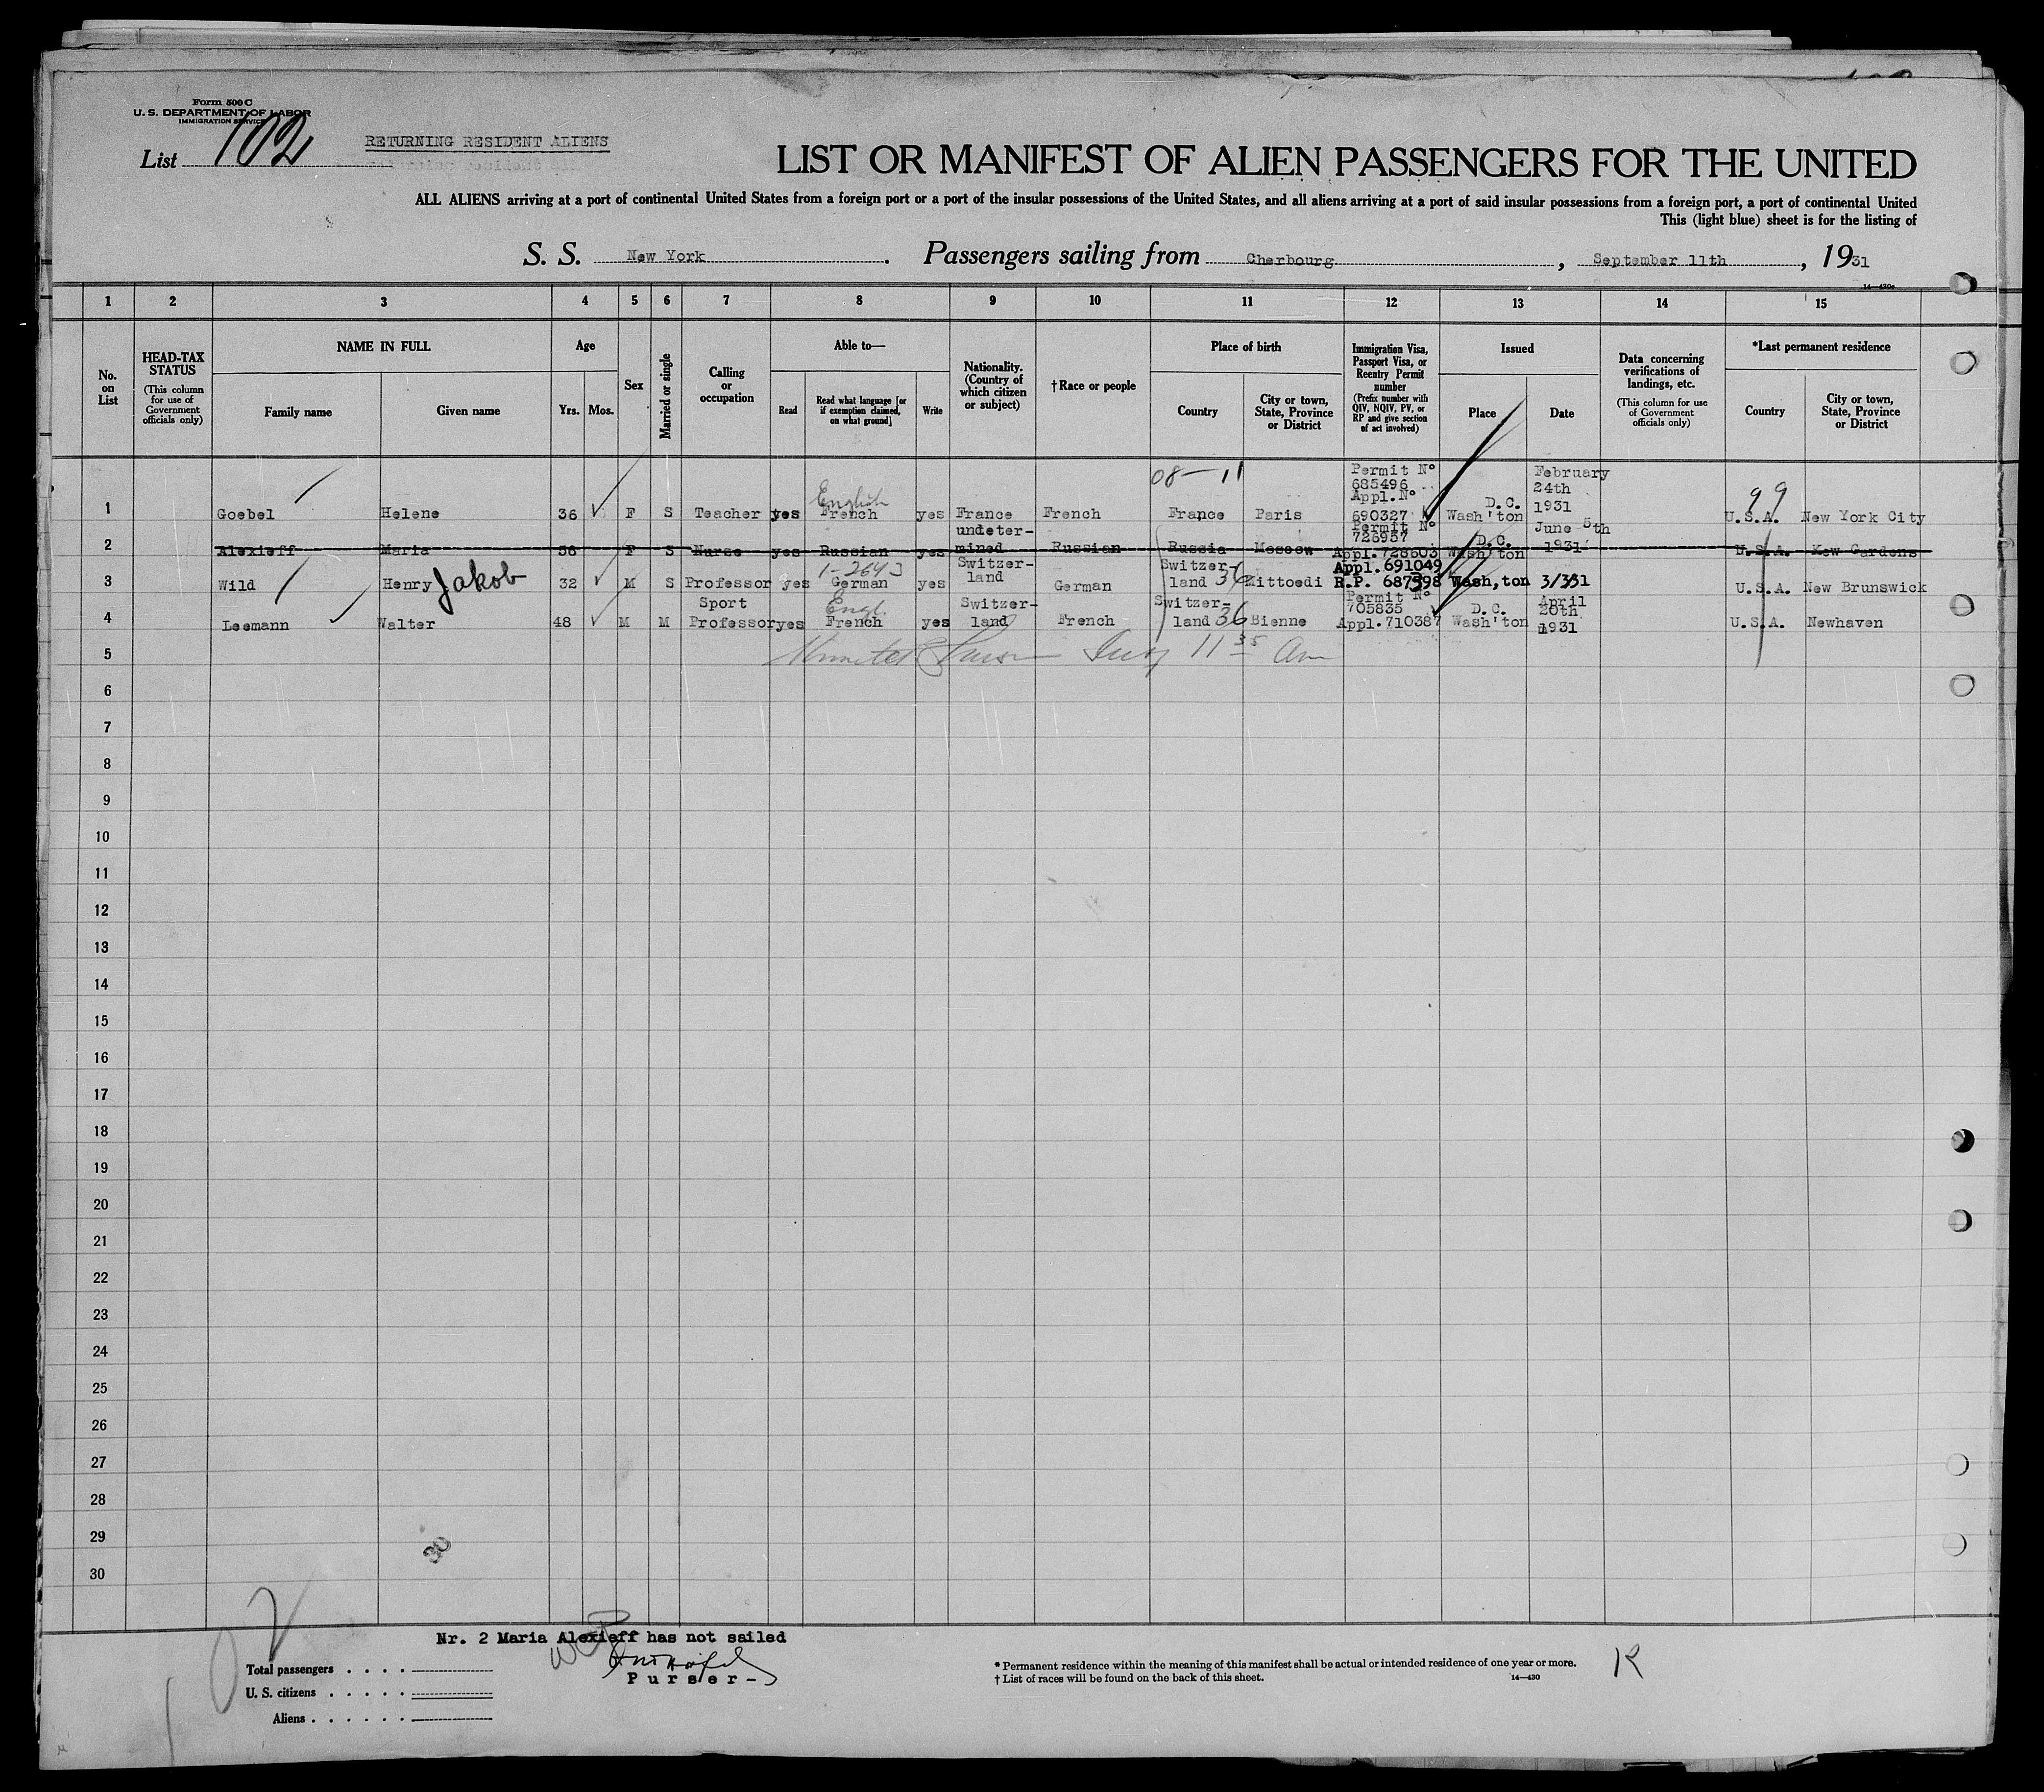 Form 500 C
U. S. DEPARTMENT OF LABOR
IMMIGRATION SERVICE
List 102
RETURNING RESIDENT ALIENS
LIST OR MANIFEST OF ALIEN PASSENGERS FOR THE UNITED
ALL ALIENS arriving at a port of continental United States from a foreign port or a port of the insular possessions of the United States, and all aliens arriving at a port of said insular possessions from a foreign port, a port of continental United
This (light blue) sheet is for the listing of
S. S. New York. Passengers sailing from Cherbourg, September 11th, 1931
14—430c
1 2 3 4 5 6 7 8 9 10 11 12 13 14 15
No. on List
HEAD-TAX STATUS
(This column for use of Government officials only)
NAME IN FULL
Family name
Given name
Age
Yrs. Mos.
Sex
Married or single
Calling or occupation
Able to—
Read
Read what language [or if exemption claimed, on what ground]
Write
Nationality. (Country of which citizen or subject)
†Race or people
Place of birth
Country
City or town, State, Province or District
Immigration Visa, Passport Visa, or Reentry Permit number
(Prefix number with QIV, NQIV, PV, or RP and give section of act involved)
Issued
Place
Date
Data concerning verifications of landings, etc.
(This column for use of Government officials only)
*Last permanent residence
Country
City or town, State, Province or District
08-11
1 Goebel Helene 36 F S Teacher yes English French yes France French France Paris Permit No 685496 Appl.No 690327 Wash'ton D.C. February 24th 1931 99 U.S.A. New York City
2 Alexieff Maria 56 F S Nurse yes Russian yes undetermined Russian Russia Moscow Permit No 726957 Appl.728603 Wash'ton D.C. June 5th 1931 U.S.A. Kew Gardens
3 Wild Henry Jakob 32 M S Professor yes German yes Switzer-land German Switzer-land 36 Appl.691049 R.P. Wash,ton 3/3/31 U.S.A. New Brunswick
4 Leemann Walter 48 M M Sport Professor yes Engl. French yes Switzer-land French Switzer-land 36 Bienne Permit No 705835 Appl.710387 Wash'ton D.C. April 20th 1931 U.S.A. Newhaven
5 11 35 Am
6
7
8
9
10
11
12
13
14
15
16
17
18
19
20
21
22
23
24
25
26
27
28
29
30
Nr. 2 Maria Alexieff has not sailed
Purser-
Total passengers
U. S. citizens
Aliens
* Permanent residence within the meaning of this manifest shall be actual or intended residence of one year or more.
† List of races will be found on the back of this sheet.
14—430